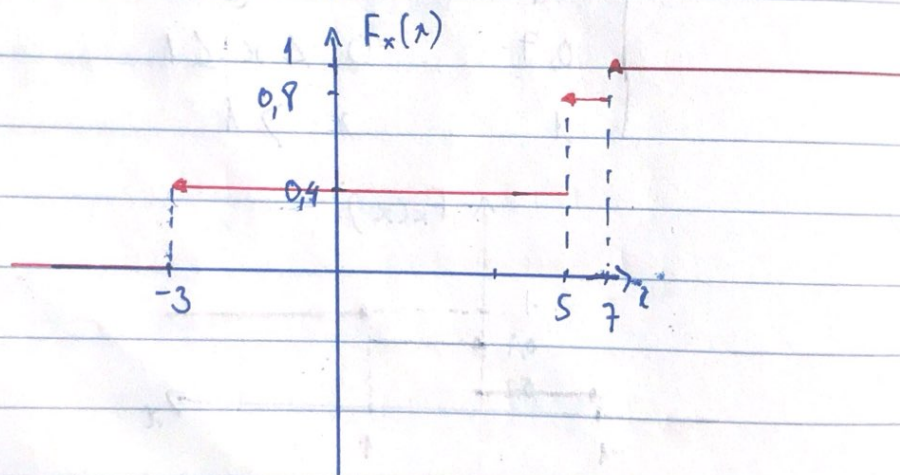 1 Fx(x)
0,8
0,4
-3 5 7 x